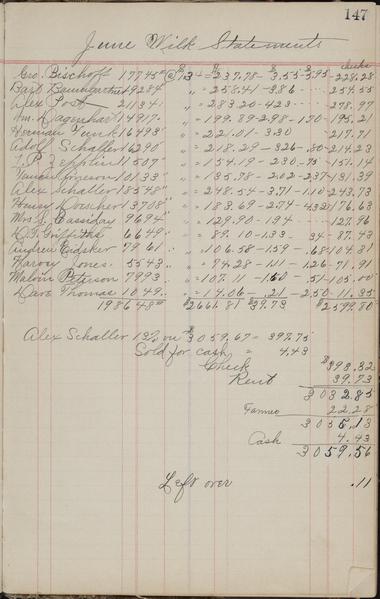 147
June Milk Statements
checks
Geo. Bischoff 17745# @ $13 = $237.78 - $3.55 - $5.95 - 228.28
Bart Baumgartner 19284 " = 258.41 - 3.86 - 254.55
Alex Post 21134 " = 283.20 - 4.23 - 278.97
Wm. 14917 " = 199.89 - 2.98 - 1.70 - 195.21
Herman 16493 " = 221.01 - 3.30 - 217.71
Adolf Schaller 16290 " = 218.29 - 3.26 - .80 - 214.23
11507 " = 154.19 - 2.30 - .75 - 151.14
10133 " = 135.78 - 2.02 - 2.37 - 131.39
Alex Schaller 18548 " = 248.54 - 3.71 - 1.10 - 243.73
Henry 13708 " = 183.69 - 2.74 - 4.32 - 176.63
Mrs. J. Cassiday 9694 " = 129.90 - 1.94 - 127.96
Griffiths 6649 " = 89.10 - 1.33 - .34 - 87.43
Andrew 7961 " = 106.58 - 1.59 - .68 - 104.31
Harvey Jones 5543 " = 74.28 - 1.11 - 1.26 - 71.91
Malvin Peterson 7993 " = 107.11 - 1.60 - .51 - 105.00
Dave Thomas 1049 " = 14.06 - .21 - 2.50 - 11.35
198648# $2661.81 $39.73 $2599.80
Alex Schaller 13% on $3059.67 = 397.75
Sold for cash = 4.43
Check $398.32
Rent 39.73
3038.85
22.28
3055.13
Cash 4.43
3059.56
Left over .11